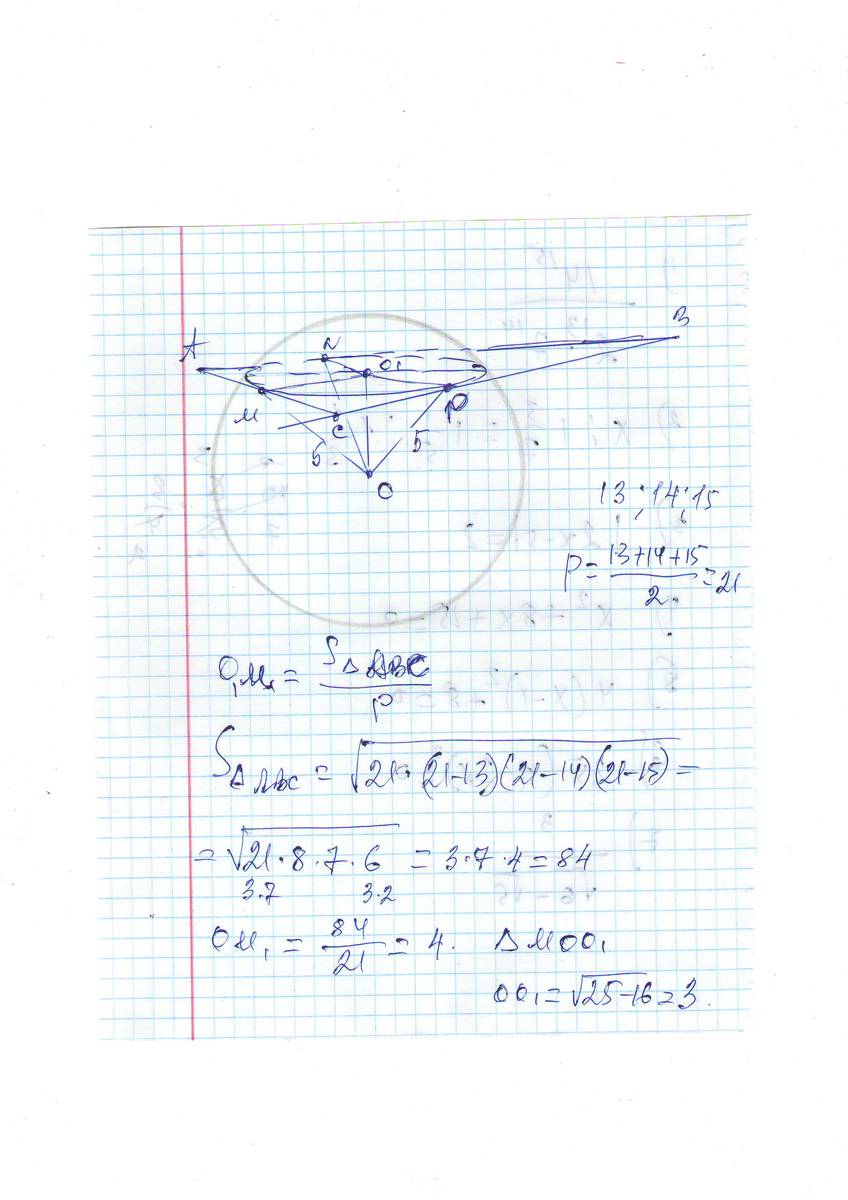 A N O₁ B
M C P
5 5
O
13; 14; 15
P = (13+14+15)/2 = 21
O₁M₁ = S△ABC / P
S△ABC = √(21·(21-13)(21-14)(21-15)) =
= √(21·8·7·6) = 3·7·4 = 84
3·7 3·2
OM₁ = 84/21 = 4. △MOO₁
OO₁ = √(25-16) = 3.